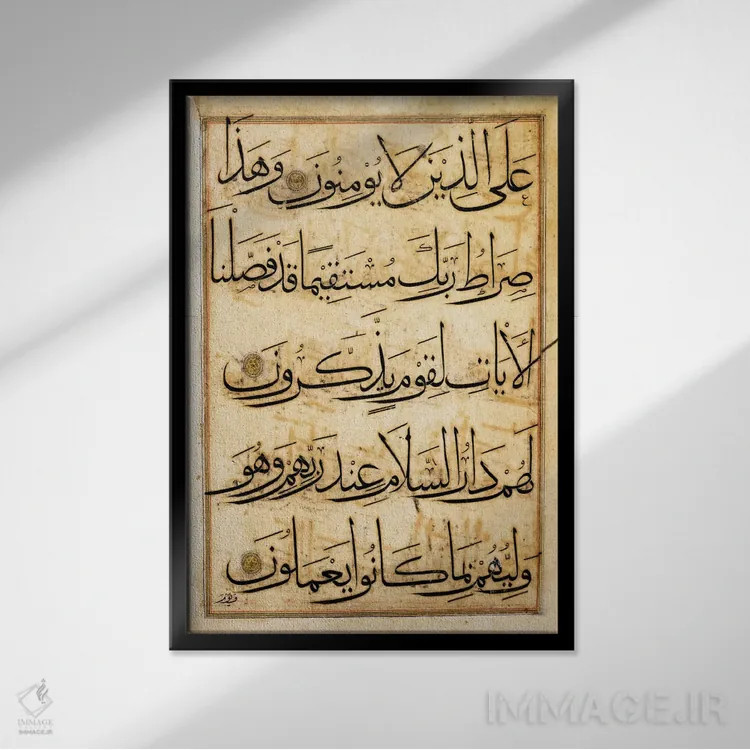 عَلَى الَّذِيْنَ لَا يُوْمِنُونَ وَهَذَا
صِرَاطُ رَبِّكَ مُسْتَقِيْمًا قَدْ فَصَّلْنَا
الْأَيَاتِ لِقَوْمٍ يَذَّكَّرُونَ
لَهُمْ دَارُ السَّلَامِ عِنْدَ رَبِّهِمْ وَهُوَ
وَلِيُّهُمْ بِمَا كَانُوا يَعْمَلُونَ
IMMAGE
IMMAGE.IR
IMMAGE.IR